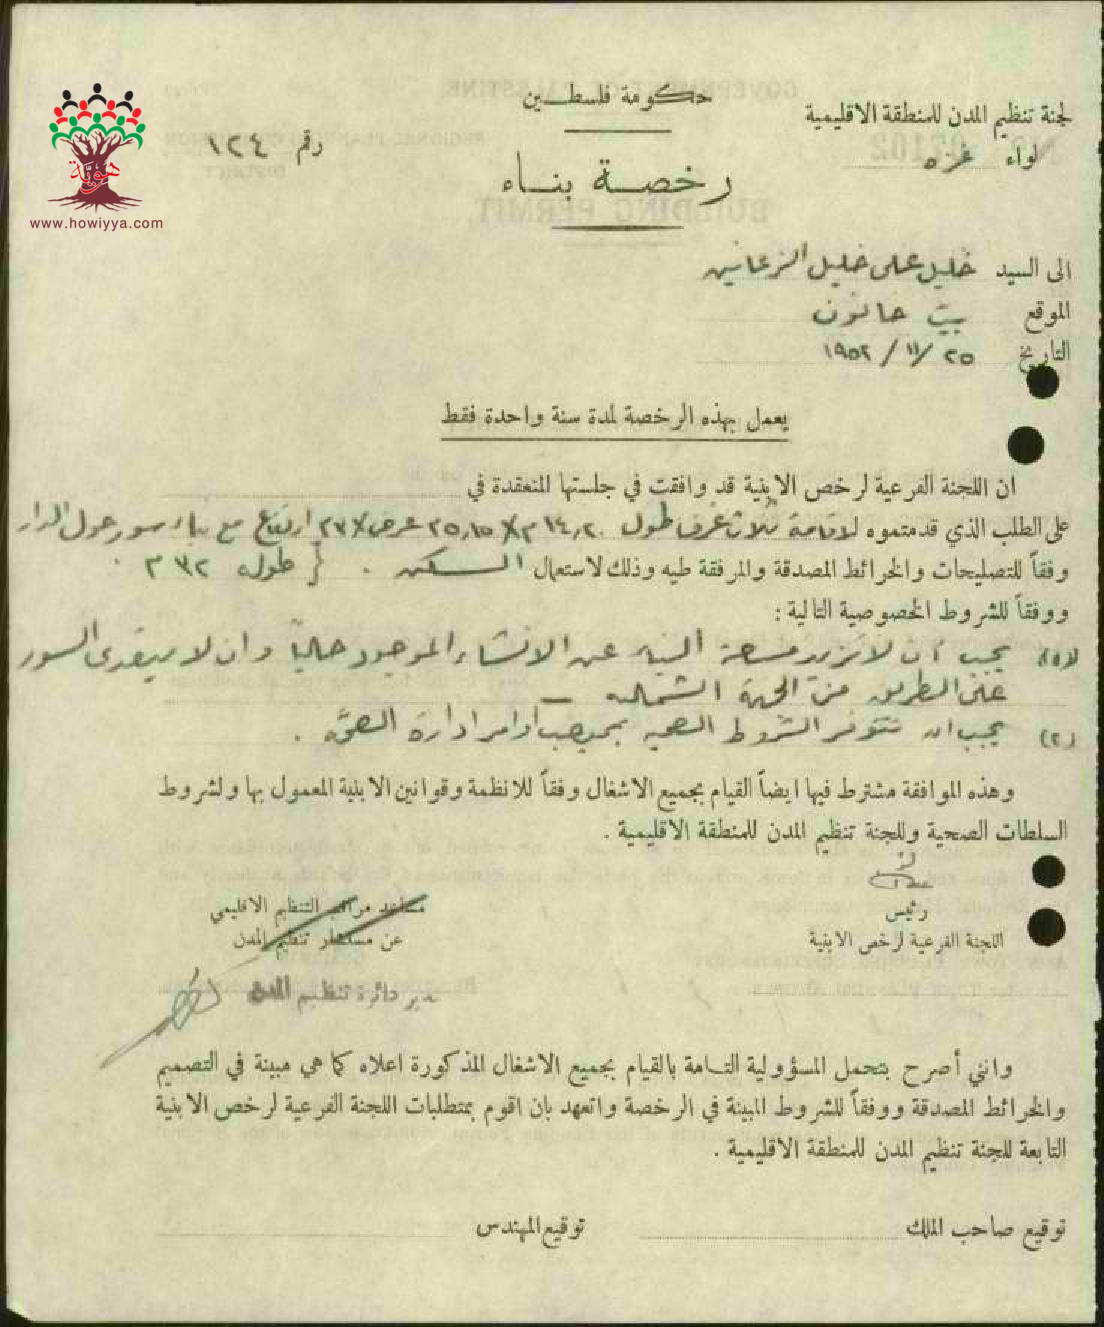 حكومة فلسطين
لجنة تنظيم المدن للمنطقة الاقليمية
لواء غزه
رقم ١٢٤
رخصة بناء
هوية
www.howiyya.com
الى السيد خليل على خليل الزعانين
الموقع بيت حانون
التاريخ ٢٥ / ١١ / ١٩٥٢
يعمل بهذه الرخصة لمدة سنة واحدة فقط
ان اللجنة الفرعية لرخص الابنية قد وافقت في جلستها المنعقدة في
على الطلب الذي قدمتموه لاقامة ثلاث غرف طول ١٤,٢٠ م عرض ارتفاع مع بناء سور حول الدار
وفقاً للتصليحات والخرائط المصدقة والمرفقة طيه وذلك لاستعمال السكن . طوله ٩٢ م .
ووفقاً للشروط الخصوصية التالية :
يجب ان لا تزيد مساحة البناء عن الانشاء الموجود حالياً وان لا يتعدى السور
على الطريق من الجهة الشمالية –
(٢) يجب ان تتوفر الشروط الصحيه بموجب اوامر ادارة الصحة .
وهذه الموافقة مشترط فيها ايضاً القيام بجميع الاشغال وفقاً للانظمة وقوانين الابنية المعمول بها ولشروط
السلطات الصحية وللجنة تنظيم المدن للمنطقة الاقليمية .
رئيس
اللجنة الفرعية لرخص الابنية
مساعد مراقب التنظيم الاقليمي
عن مستشار تنظيم المدن
مدير دائرة تنظيم المدن
وانني أصرح بتحمل المسؤولية التامة بالقيام بجميع الاشغال المذكورة اعلاه كما هي مبينة في التصميم
والخرائط المصدقة ووفقاً للشروط المبينة في الرخصة واتعهد بان اقوم بمتطلبات اللجنة الفرعية لرخص الابنية
التابعة للجنة تنظيم المدن للمنطقة الاقليمية .
توقيع صاحب الملك
توقيع المهندس